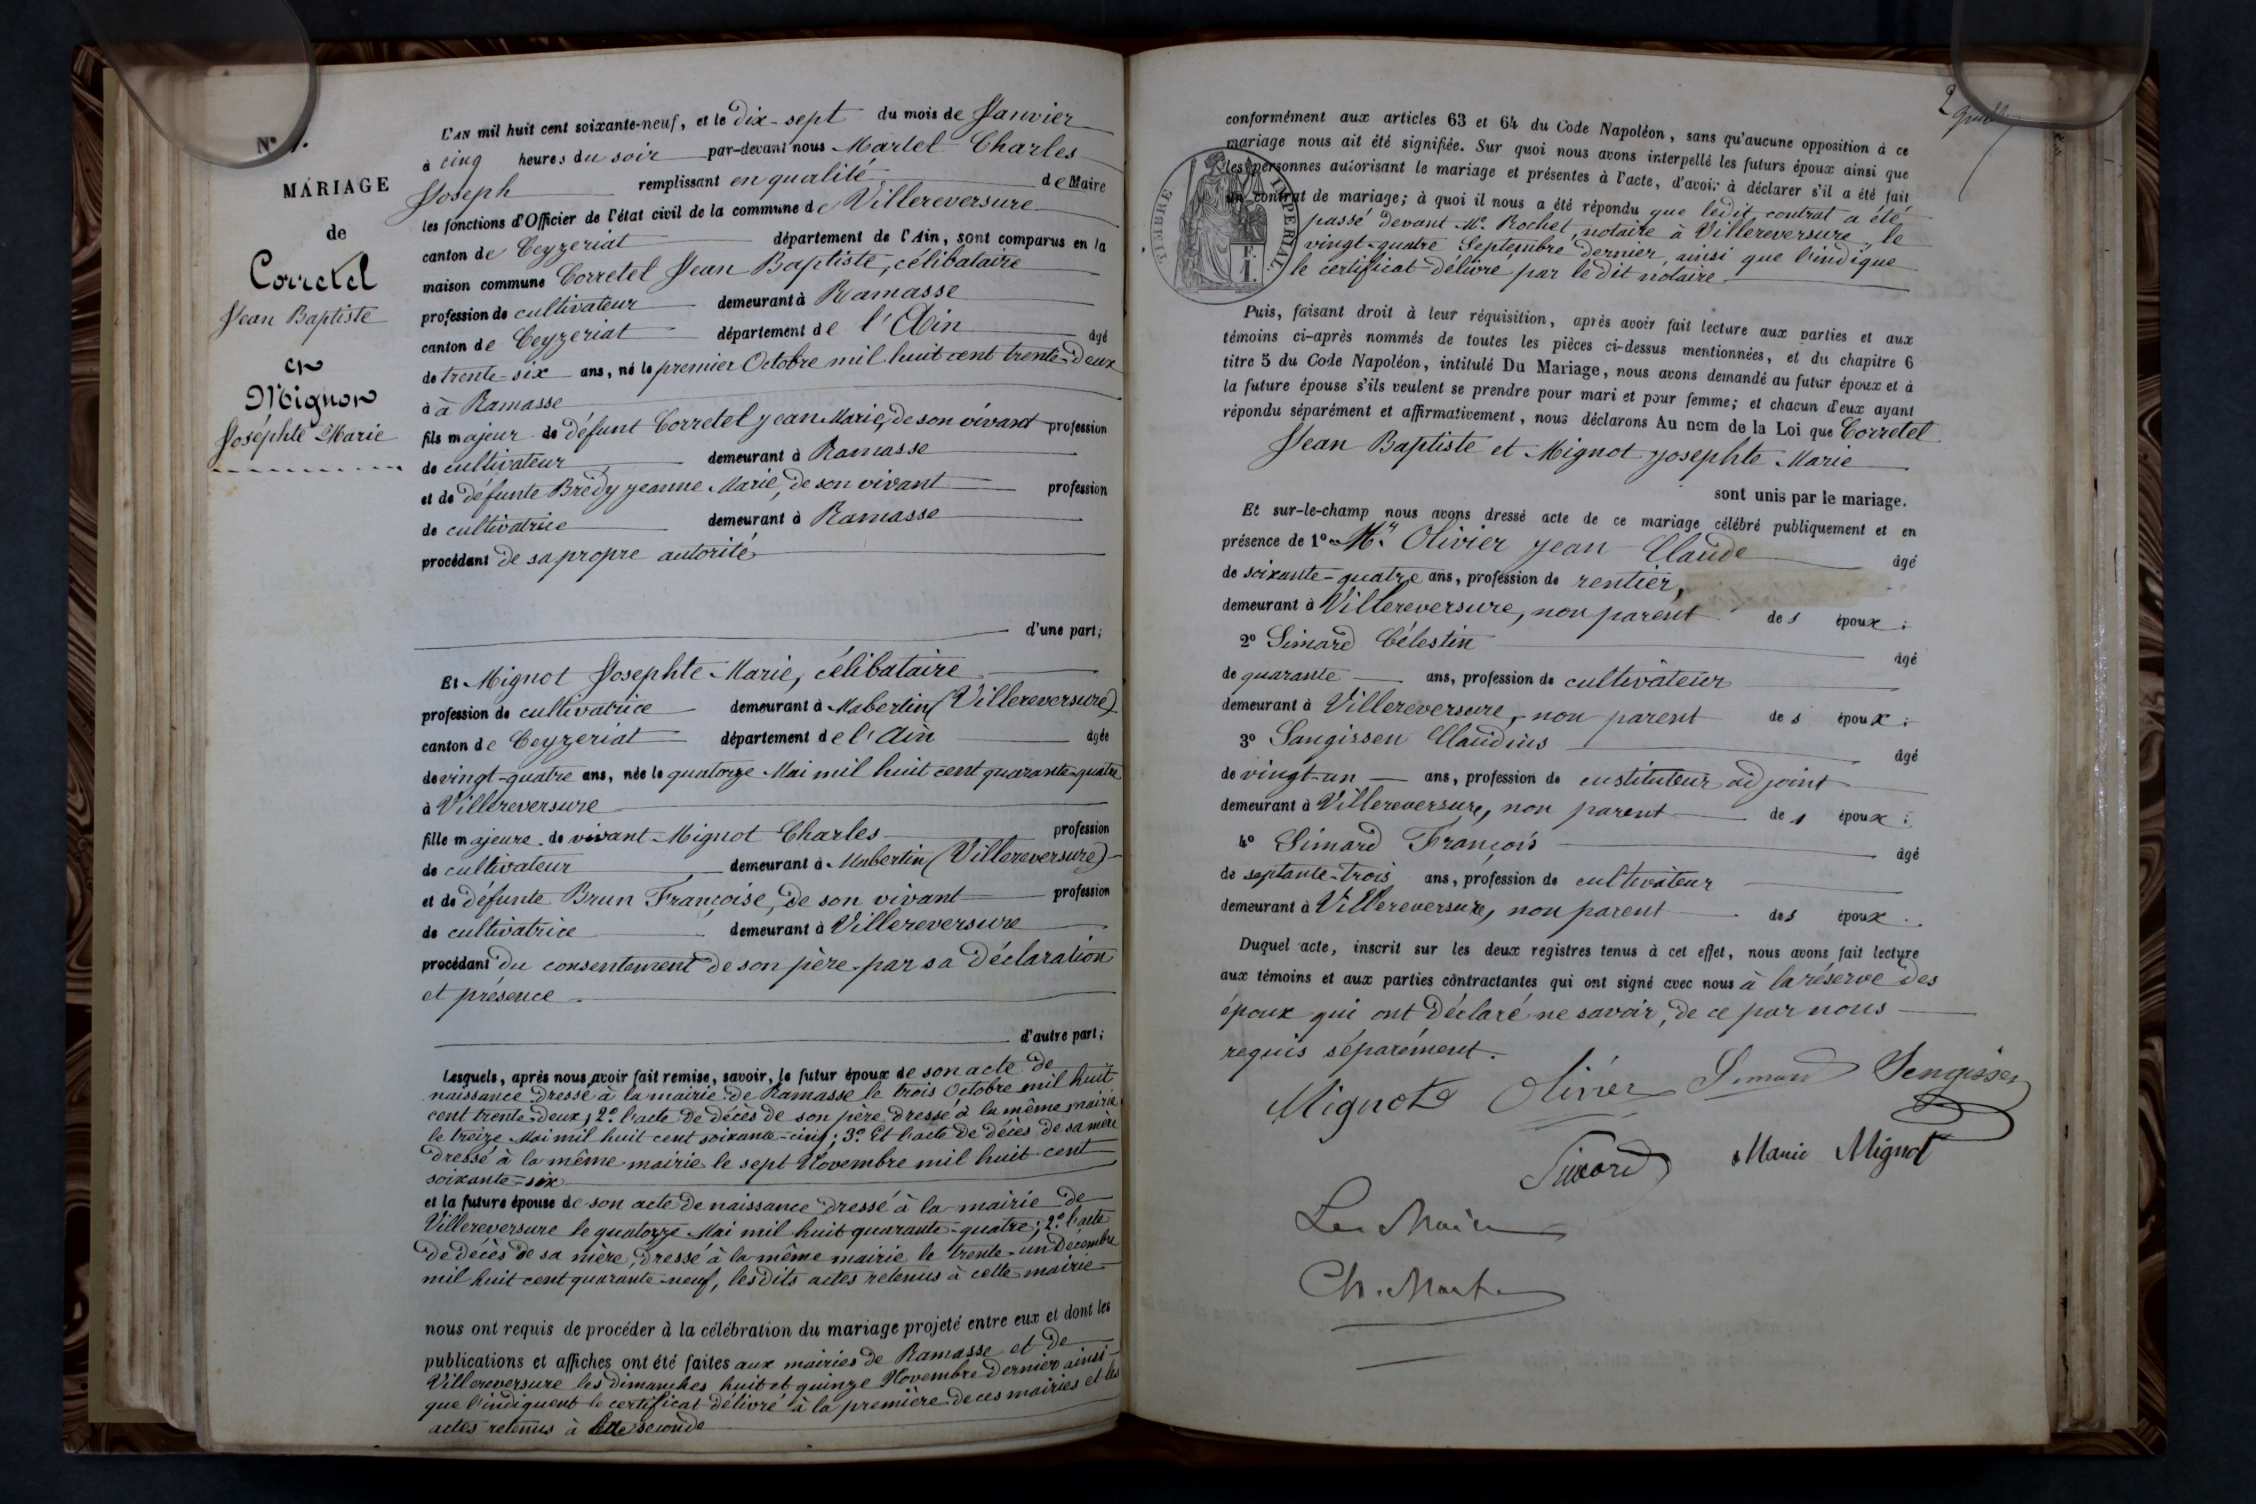 Nº 1.
MARIAGE
de
Corretel
Jean Baptiste
et
Mignot
Josephte Marie
L'AN mil huit cent soixante-neuf, et le dix-sept du mois de Janvier
à cinq heures du soir par-devant nous Martel Charles
Joseph remplissant en qualité de Maire
les fonctions d'Officier de l'état civil de la commune de Villereversure
canton de Ceyzeriat département de l'Ain, sont comparus en la
maison commune Corretel Jean Baptiste, célibataire
profession de cultivateur demeurant à Ramasse
canton de Ceyzeriat département de l'Ain âgé
de trente-six ans, né le premier Octobre mil huit cent trente-deux
à à Ramasse
fils majeur de défunt Corretel Jean Marie, de son vivant profession
de cultivateur demeurant à Ramasse
et de défunte Brédy Jeanne Marie, de son vivant profession
de cultivatrice demeurant à Ramasse
procédant de sa propre autorité
d'une part;
Et Mignot Josephte Marie, célibataire
profession de cultivatrice demeurant à Mabertin (Villereversure)
canton de Ceyzeriat département de l'Ain âgée
de vingt-quatre ans, née le quatorze Mai mil huit cent quarante-quatre
à Villereversure
fille majeure de vivant Mignot Charles profession
de cultivateur demeurant à Mabertin (Villereversure)
et de défunte Brun Françoise, de son vivant profession
de cultivatrice demeurant à Villereversure
procédant du consentement de son père par sa déclaration
et présence
d'autre part;
Lesquels, après nous avoir fait remise, savoir, le futur époux de son acte de
naissance dressé à la mairie de Ramasse le trois Octobre mil huit
cent trente-deux; 2º l'acte de décès de son père dressé à la même mairie
le treize Mai mil huit cent soixante-cinq; 3º Et l'acte de décès de sa mère
dressé à la même mairie le sept Novembre mil huit cent
soixante-six
et la future épouse de son acte de naissance dressé à la mairie de
Villereversure le quatorze Mai mil huit quarante-quatre; 2º l'acte
de décès de sa mère, dressé à la même mairie le trente-un Décembre
mil huit cent quarante-neuf, lesdits actes retenus à cette mairie
nous ont requis de procéder à la célébration du mariage projeté entre eux et dont les
publications et affiches ont été faites aux mairies de Ramasse et de
Villereversure les dimanches huit et quinze Novembre dernier ainsi
que l'indiquent le certificat délivré à la première de ces mairies et les
actes retenus à la seconde
2
conformément aux articles 63 et 64 du Code Napoléon, sans qu'aucune opposition à ce
mariage nous ait été signifiée. Sur quoi nous avons interpellé les futurs époux ainsi que
les personnes autorisant le mariage et présentes à l'acte, d'avoir à déclarer s'il a été fait
un contrat de mariage; à quoi il nous a été répondu que ledit contrat a été
passé devant Me Rochet, notaire à Villereversure, le
vingt-quatre Septembre dernier, ainsi que l'indique
le certificat délivré par le dit notaire
TIMBRE IMPERIAL
1 F.
Puis, faisant droit à leur réquisition, après avoir fait lecture aux parties et aux
témoins ci-après nommés de toutes les pièces ci-dessus mentionnées, et du chapitre 6
titre 5 du Code Napoléon, intitulé Du Mariage, nous avons demandé au futur époux et à
la future épouse s'ils veulent se prendre pour mari et pour femme; et chacun d'eux ayant
répondu séparément et affirmativement, nous déclarons Au nom de la Loi que Corretel
Jean Baptiste et Mignot Josephte Marie
sont unis par le mariage.
Et sur-le-champ nous avons dressé acte de ce mariage célébré publiquement et en
présence de 1º Mr. Olivier Jean Claude âgé
de soixante-quatre ans, profession de rentier,
demeurant à Villereversure, non parent des époux;
2º Simard Célestin âgé
de quarante ans, profession de cultivateur
demeurant à Villereversure, non parent des époux;
3º Sangissen Claudius âgé
de vingt-un ans, profession de instituteur adjoint
demeurant à Villereversure, non parent des époux;
4º Simard François âgé
de septante-trois ans, profession de cultivateur
demeurant à Villereversure, non parent des époux.
Duquel acte, inscrit sur les deux registres tenus à cet effet, nous avons fait lecture
aux témoins et aux parties contractantes qui ont signé avec nous à la réserve des
époux qui ont déclaré ne savoir, de ce par nous
requis séparément.
Mignot Olivier Simard Sengissen
Simard Marie Mignot
Le Maire
Ch. Martel